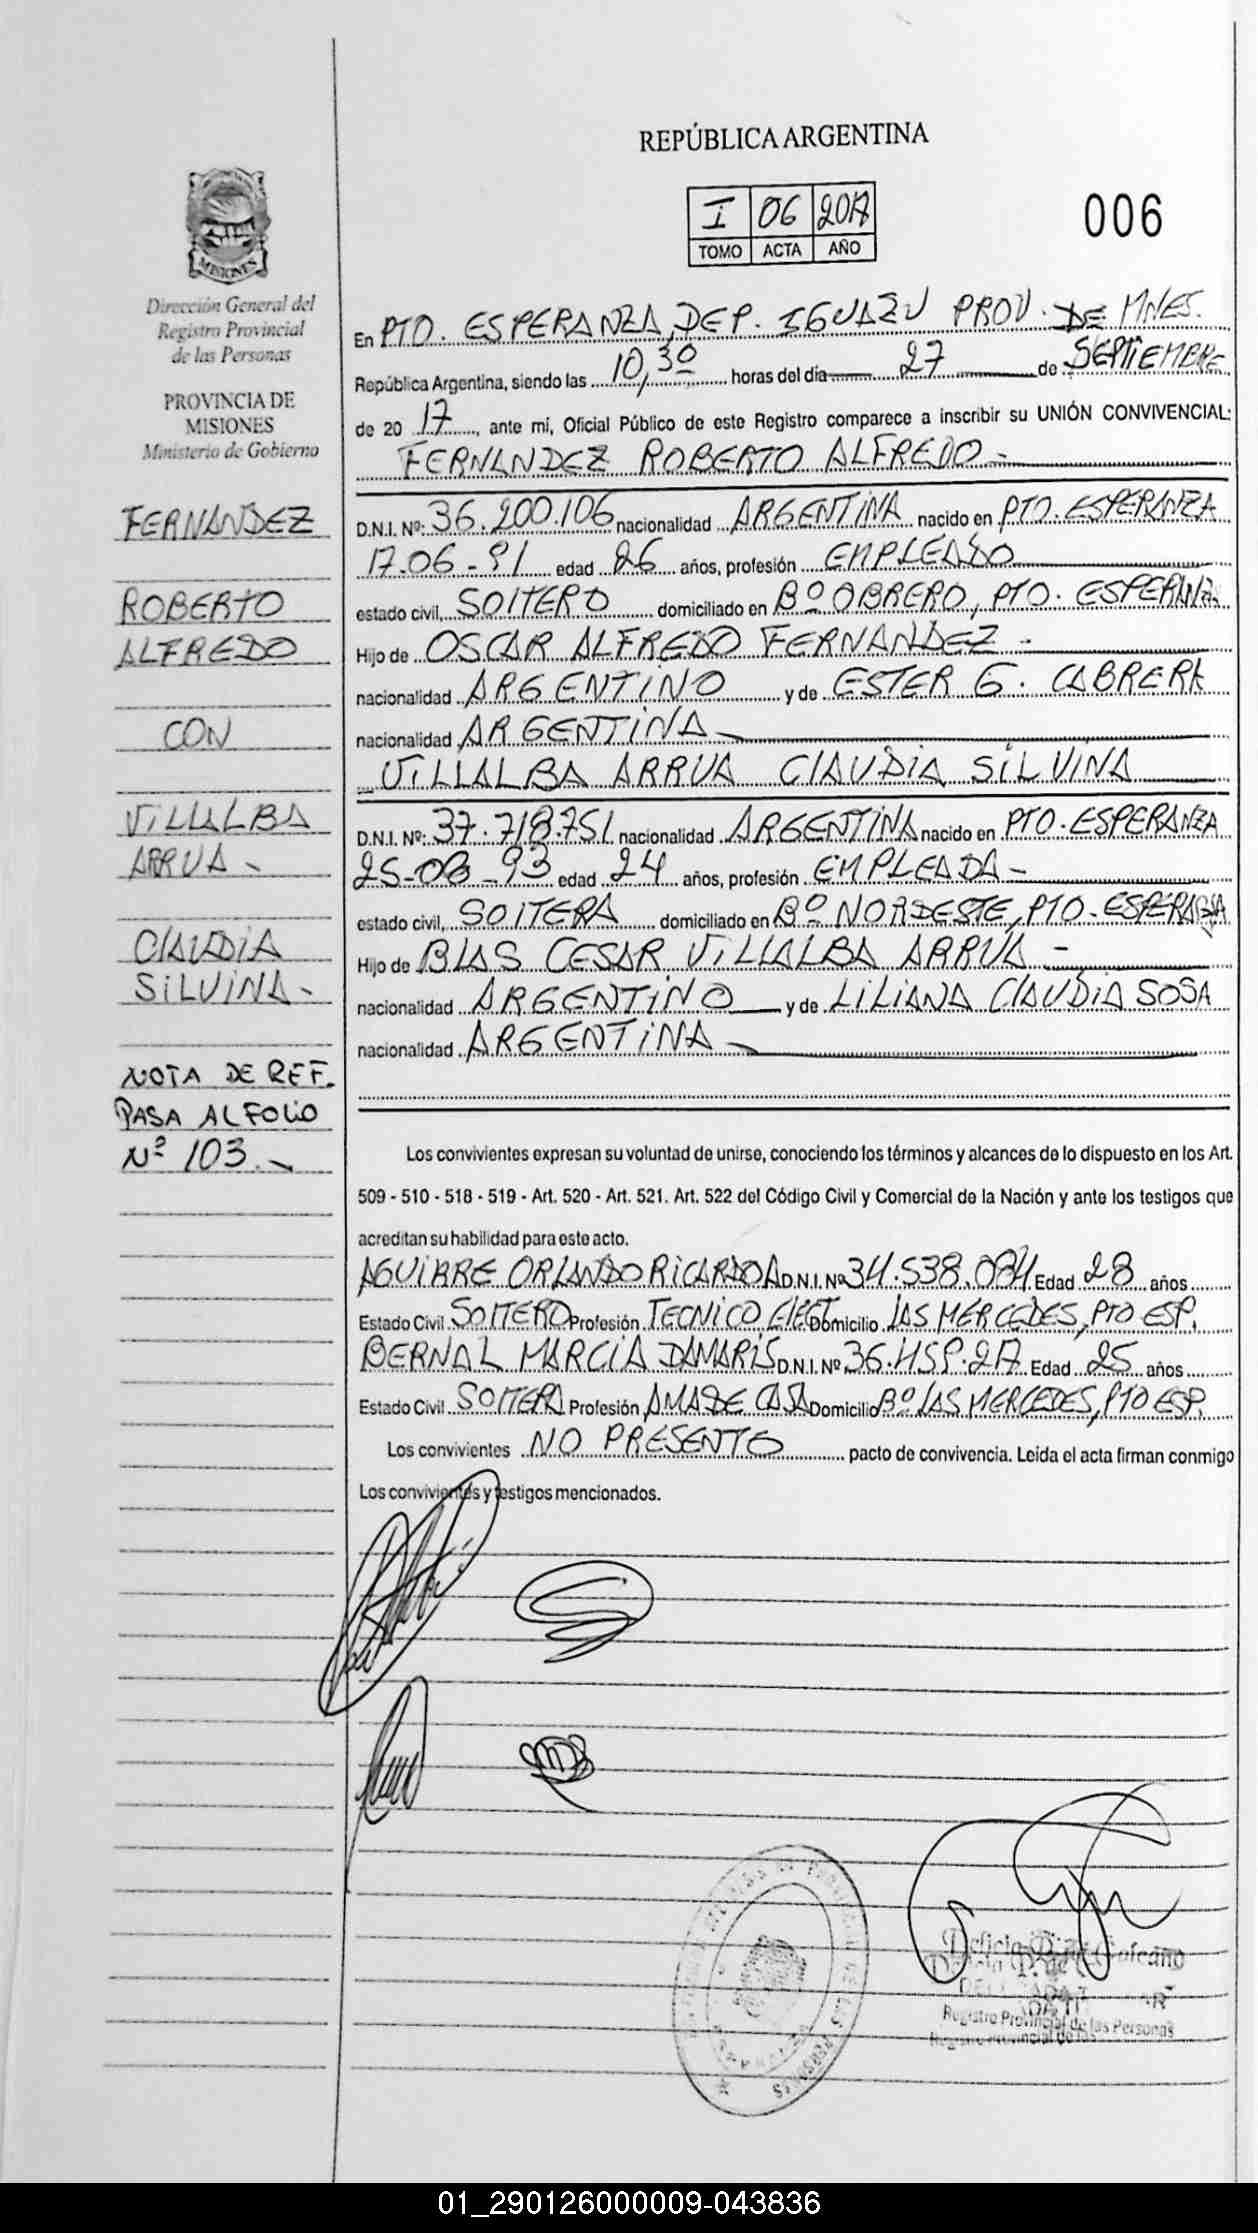 REPÚBLICA ARGENTINA
I 06 2017
TOMO ACTA AÑO
006
MISIONES
Dirección General del
Registro Provincial
de las Personas
PROVINCIA DE
MISIONES
Ministerio de Gobierno
FERNANDEZ
ROBERTO
ALFREDO
CON
VILLALBA
ARRUA -
CLAUDIA
SILVINA -
NOTA DE REF.
PASA AL FOLIO
Nº 103.-
En PTO. ESPERANZA, DEP. IGUAZU PROV. DE MNES.
República Argentina, siendo las 10,30 horas del día 27 de SEPTIEMBRE
de 20 17, ante mi, Oficial Público de este Registro comparece a inscribir su UNIÓN CONVIVENCIAL:
FERNANDEZ ROBERTO ALFREDO -
D.N.I. Nº: 36.200.106 nacionalidad ARGENTINA nacido en PTO. ESPERANZA
17-06-91 edad 26 años, profesión EMPLEADO
estado civil, SOLTERO domiciliado en Bº OBRERO, PTO. ESPERANZA
Hijo de OSCAR ALFREDO FERNANDEZ -
nacionalidad ARGENTINO y de ESTER G. CABRERA
nacionalidad ARGENTINA
VILLALBA ARRUA CLAUDIA SILVINA
D.N.I. Nº: 37.718.751 nacionalidad ARGENTINA nacido en PTO. ESPERANZA
25-08-93 edad 24 años, profesión EMPLEADA -
estado civil, SOLTERA domiciliado en Bº NORDESTE, PTO. ESPERANZA
Hijo de BLAS CESAR VILLALBA ARRUA -
nacionalidad ARGENTINO y de LILIANA CLAUDIA SOSA
nacionalidad ARGENTINA -
Los convivientes expresan su voluntad de unirse, conociendo los términos y alcances de lo dispuesto en los Art.
509 - 510 - 518 - 519 - Art. 520 - Art. 521. Art. 522 del Código Civil y Comercial de la Nación y ante los testigos que
acreditan su habilidad para este acto.
AGUIRRE ORLANDO RICARDO A D.N.I. Nº 34.538.084 Edad 28 años
Estado Civil SOLTERO Profesión TECNICO ELECT Domicilio LAS MERCEDES, PTO ESP.
BERNAL MARCIA DAMARIS D.N.I. Nº Edad 25 años
Estado Civil SOLTERA Profesión AMA DE CASA Domicilio Bº LAS MERCEDES, PTO ESP.
Los convivientes NO PRESENTO pacto de convivencia. Leida el acta firman conmigo
Los convivientes y testigos mencionados.
Registro Provincial de las Personas
01_290126000009-043836